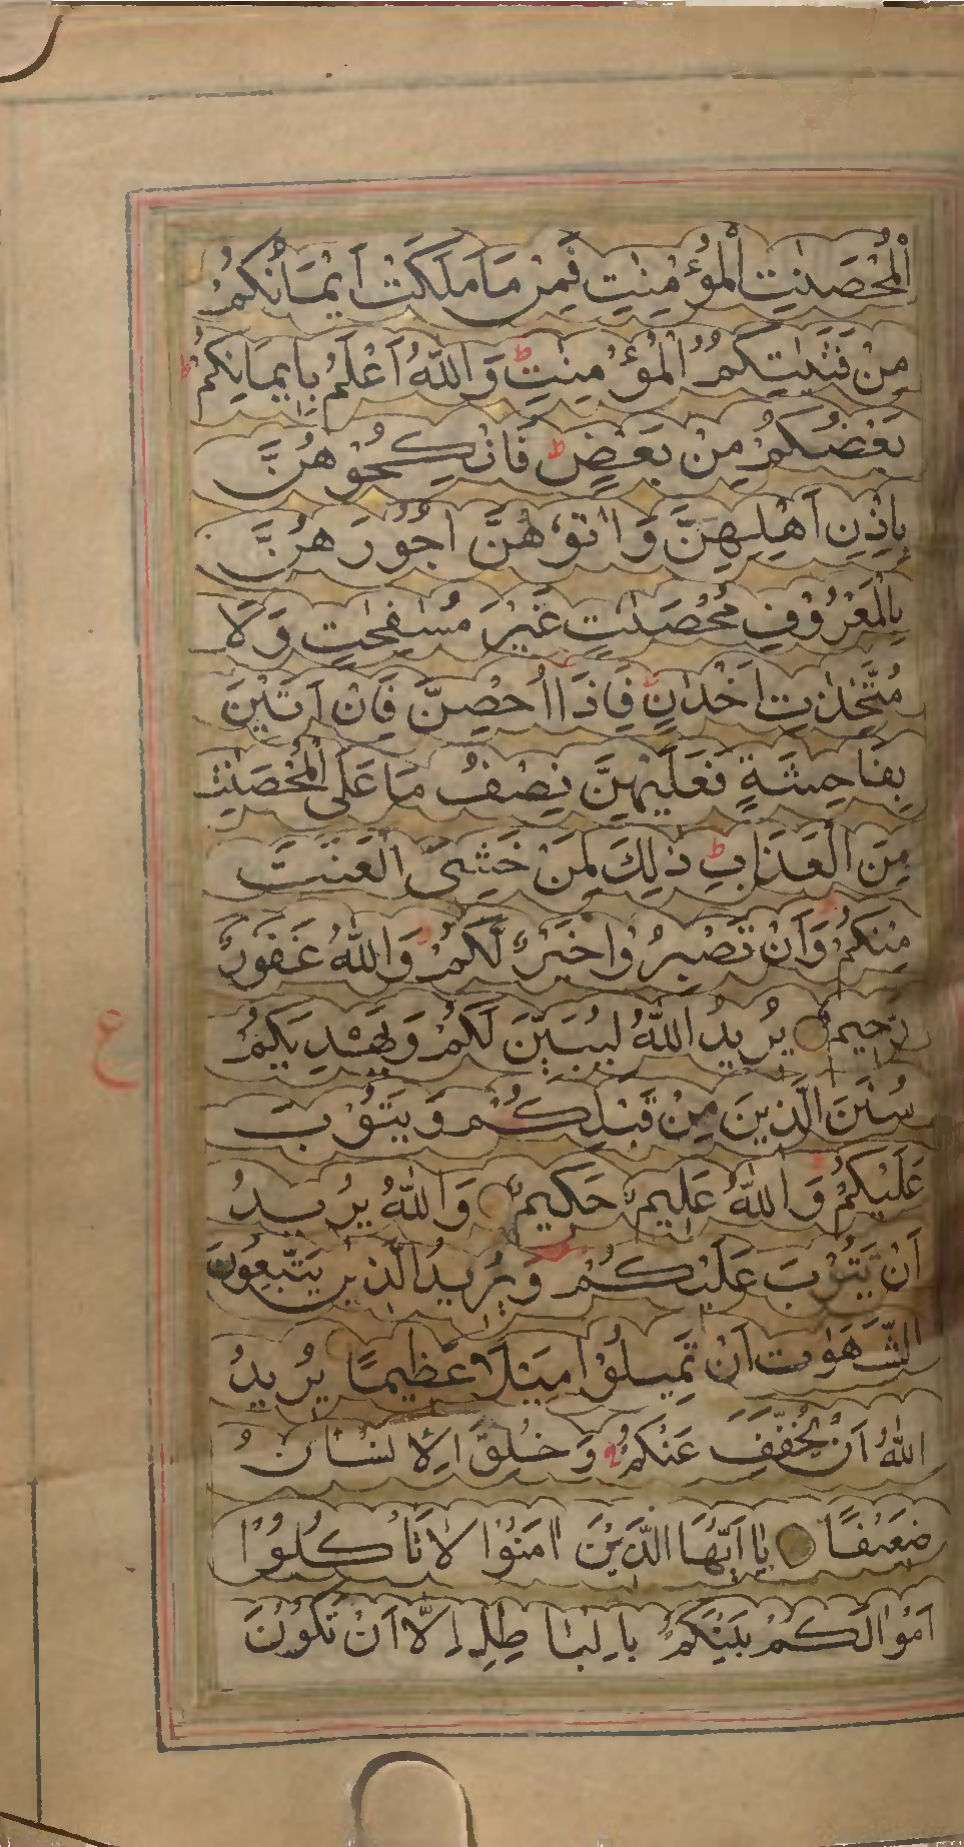 الْمُحْصَنٰتِ الْمُؤْمِنٰتِ فَمِنْ مَا مَلَكَتْ اَيْمَانُكُمْ
مِنْ فَتَيٰتِكُمُ الْمُؤْمِنٰتِ ط وَاللّٰهُ اَعْلَمُ بِاِيمَانِكُمْ ط
بَعْضُكُمْ مِنْ بَعْضٍ ط فَانْكِحُوْهُنَّ
بِاِذْنِ اَهْلِهِنَّ وَاٰتُوْهُنَّ اُجُوْرَهُنَّ
بِالْمَعْرُوْفِ مُحْصَنٰتٍ غَيْرَ مُسٰفِحٰتٍ وَلَا
مُتَّخِذٰتِ اَخْدَانٍ فَاِذَا اُحْصِنَّ فَاِنْ اَتَيْنَ
بِفَاحِشَةٍ فَعَلَيْهِنَّ نِصْفُ مَا عَلَى الْمُحْصَنٰتِ
مِنَ الْعَذَابِ ط ذٰلِكَ لِمَنْ خَشِىَ الْعَنَتَ
مِنْكُمْ وَاَنْ تَصْبِرُوْا خَيْرٌ لَّكُمْ وَاللّٰهُ غَفُوْرٌ
رَّحِيمٌ يُرِيدُ اللّٰهُ لِيُبَيِّنَ لَكُمْ وَيَهْدِيَكُمْ
ع
سُنَنَ الَّذِينَ مِنْ قَبْلِكُمْ وَيَتُوْبَ
عَلَيْكُمْ وَاللّٰهُ عَلِيمٌ حَكِيمٌ وَاللّٰهُ يُرِيدُ
اَنْ يَتُوْبَ عَلَيْكُمْ وَيُرِيدُ الَّذِينَ يَتَّبِعُوْنَ
الشَّهَوٰتِ اَنْ تَمِيلُوْا مَيْلًا عَظِيمًا يُرِيدُ
اللّٰهُ اَنْ يُخَفِّفَ عَنْكُمْ وَخُلِقَ الْاِنْسَانُ
ضَعِيْفًا يٰا اَيُّهَا الَّذِيْنَ اٰمَنُوْا لَا تَاْكُلُوْا
اَمْوَالَكُمْ بَيْنَكُمْ بِالْبَاطِلِ اِلَّا اَنْ تَكُوْنَ